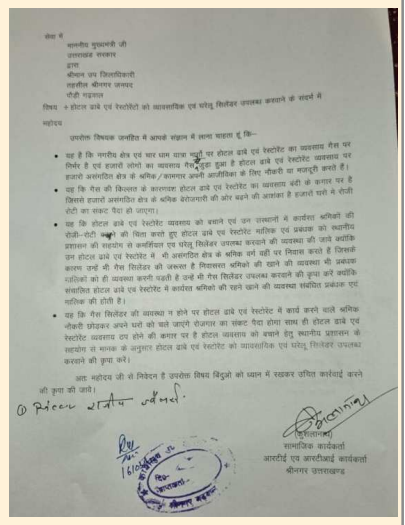 सेवा में
माननीय मुख्यमंत्री जी
उत्तराखण्ड सरकार
द्वारा
श्रीमान उप जिलाधिकारी
तहसील श्रीनगर जनपद
पौडी गढ़वाल
विषय + होटल ढाबे एवं रेस्टोरेंटो को व्यावसायिक एवं घरेलू सिलेंडर उपलब्ध करवाने के संदर्भ में
महोदय
उपरोक्त विषयक जनहित में आपके संज्ञान में लाना चाहता हूं कि–
• यह है कि नगरीय क्षेत्र एवं चार धाम यात्रा मार्गों पर होटल ढाबे एवं रेस्टोरेंट का व्यवसाय गैस पर
निर्भर है एवं हजारों लोगों का व्यवसाय गैस जुडा हुआ है होटल ढाबे एवं रेस्टोरेंट व्यवसाय पर
हजारो असंगठित क्षेत्र के श्रमिक/कामगार अपनी आजीविका के लिए नौकरी या मजदूरी करते हैं।
• यह कि गैस की किल्लत के कारणवश होटल ढाबे एवं रेस्टोरेंट का व्यवसाय बंदी के कगार पर है
जिससे हजारों असंगठित क्षेत्र के श्रमिक बेरोजगारी की ओर बढ़ने की आशंका है हजारों घरो मे रोजी
रोटी का संकट पैदा हो जाएगा।
• यह कि होटल ढाबे एवं रेस्टोरेंट व्यवसाय को बचाने एवं उन स्थानों में कार्यरत श्रमिकों की
रोजी–रोटी की चिंता करते हुए होटल ढाबे एवं रेस्टोरेंट मालिक एवं प्रबंधक को स्थानीय
प्रशासन की सहयोग से कमर्शियल एवं घरेलू सिलेंडर उपलब्ध करवाने की व्यवस्था की जाये क्योंकि
उन होटल ढाबे एवं रेस्टोरेंट में भी असंगठित क्षेत्र के श्रमिक वर्ग वहीं पर निवास करते हैं जिसके
कारण उन्हें भी गैस सिलेंडर की जरूरत है निवासरत श्रमिकों की खाने की व्यवस्था भी प्रबंधक
मालिकों को ही व्यवस्था करनी पडती है उन्हें भी गैस सिलेंडर उपलब्ध करवाने की कृपा करें क्योंकि
संचालित होटल ढाबे एवं रेस्टोरेंट में कार्यरत श्रमिकों की रहने खाने की व्यवस्था संबंधित प्रबंधक एवं
मालिक की होती है।
• यह कि गैस सिलेंडर की व्यवस्था न होने पर होटल ढाबे एवं रेस्टोरेंट में कार्य करने वाले श्रमिक
नौकरी छोड़कर अपने घरों को चले जाएंगे रोजगार का संकट पैदा होगा साथ ही होटल ढाबे एवं
रेस्टोरेंट व्यवसाय ठप होने की कगार पर है होटल ढाबे एवं व्यवसाय को बचाने हेतु स्थानीय प्रशासन के
सहयोग से मानक के अनुसार होटल ढाबे एवं रेस्टोरेंट को व्यावसायिक एवं घरेलू सिलेंडर उपलब्ध
करवाने की कृपा करें।
अतः महोदय जी से निवेदन है उपरोक्त विषय बिंदुओं को ध्यान में रखकर उचित कार्रवाई करने
की कृपा की जावे।
(कुशलानाथ)
सामाजिक कार्यकर्ता
आरटीई एवं आरटीआई कार्यकर्ता
श्रीनगर उत्तराखण्ड